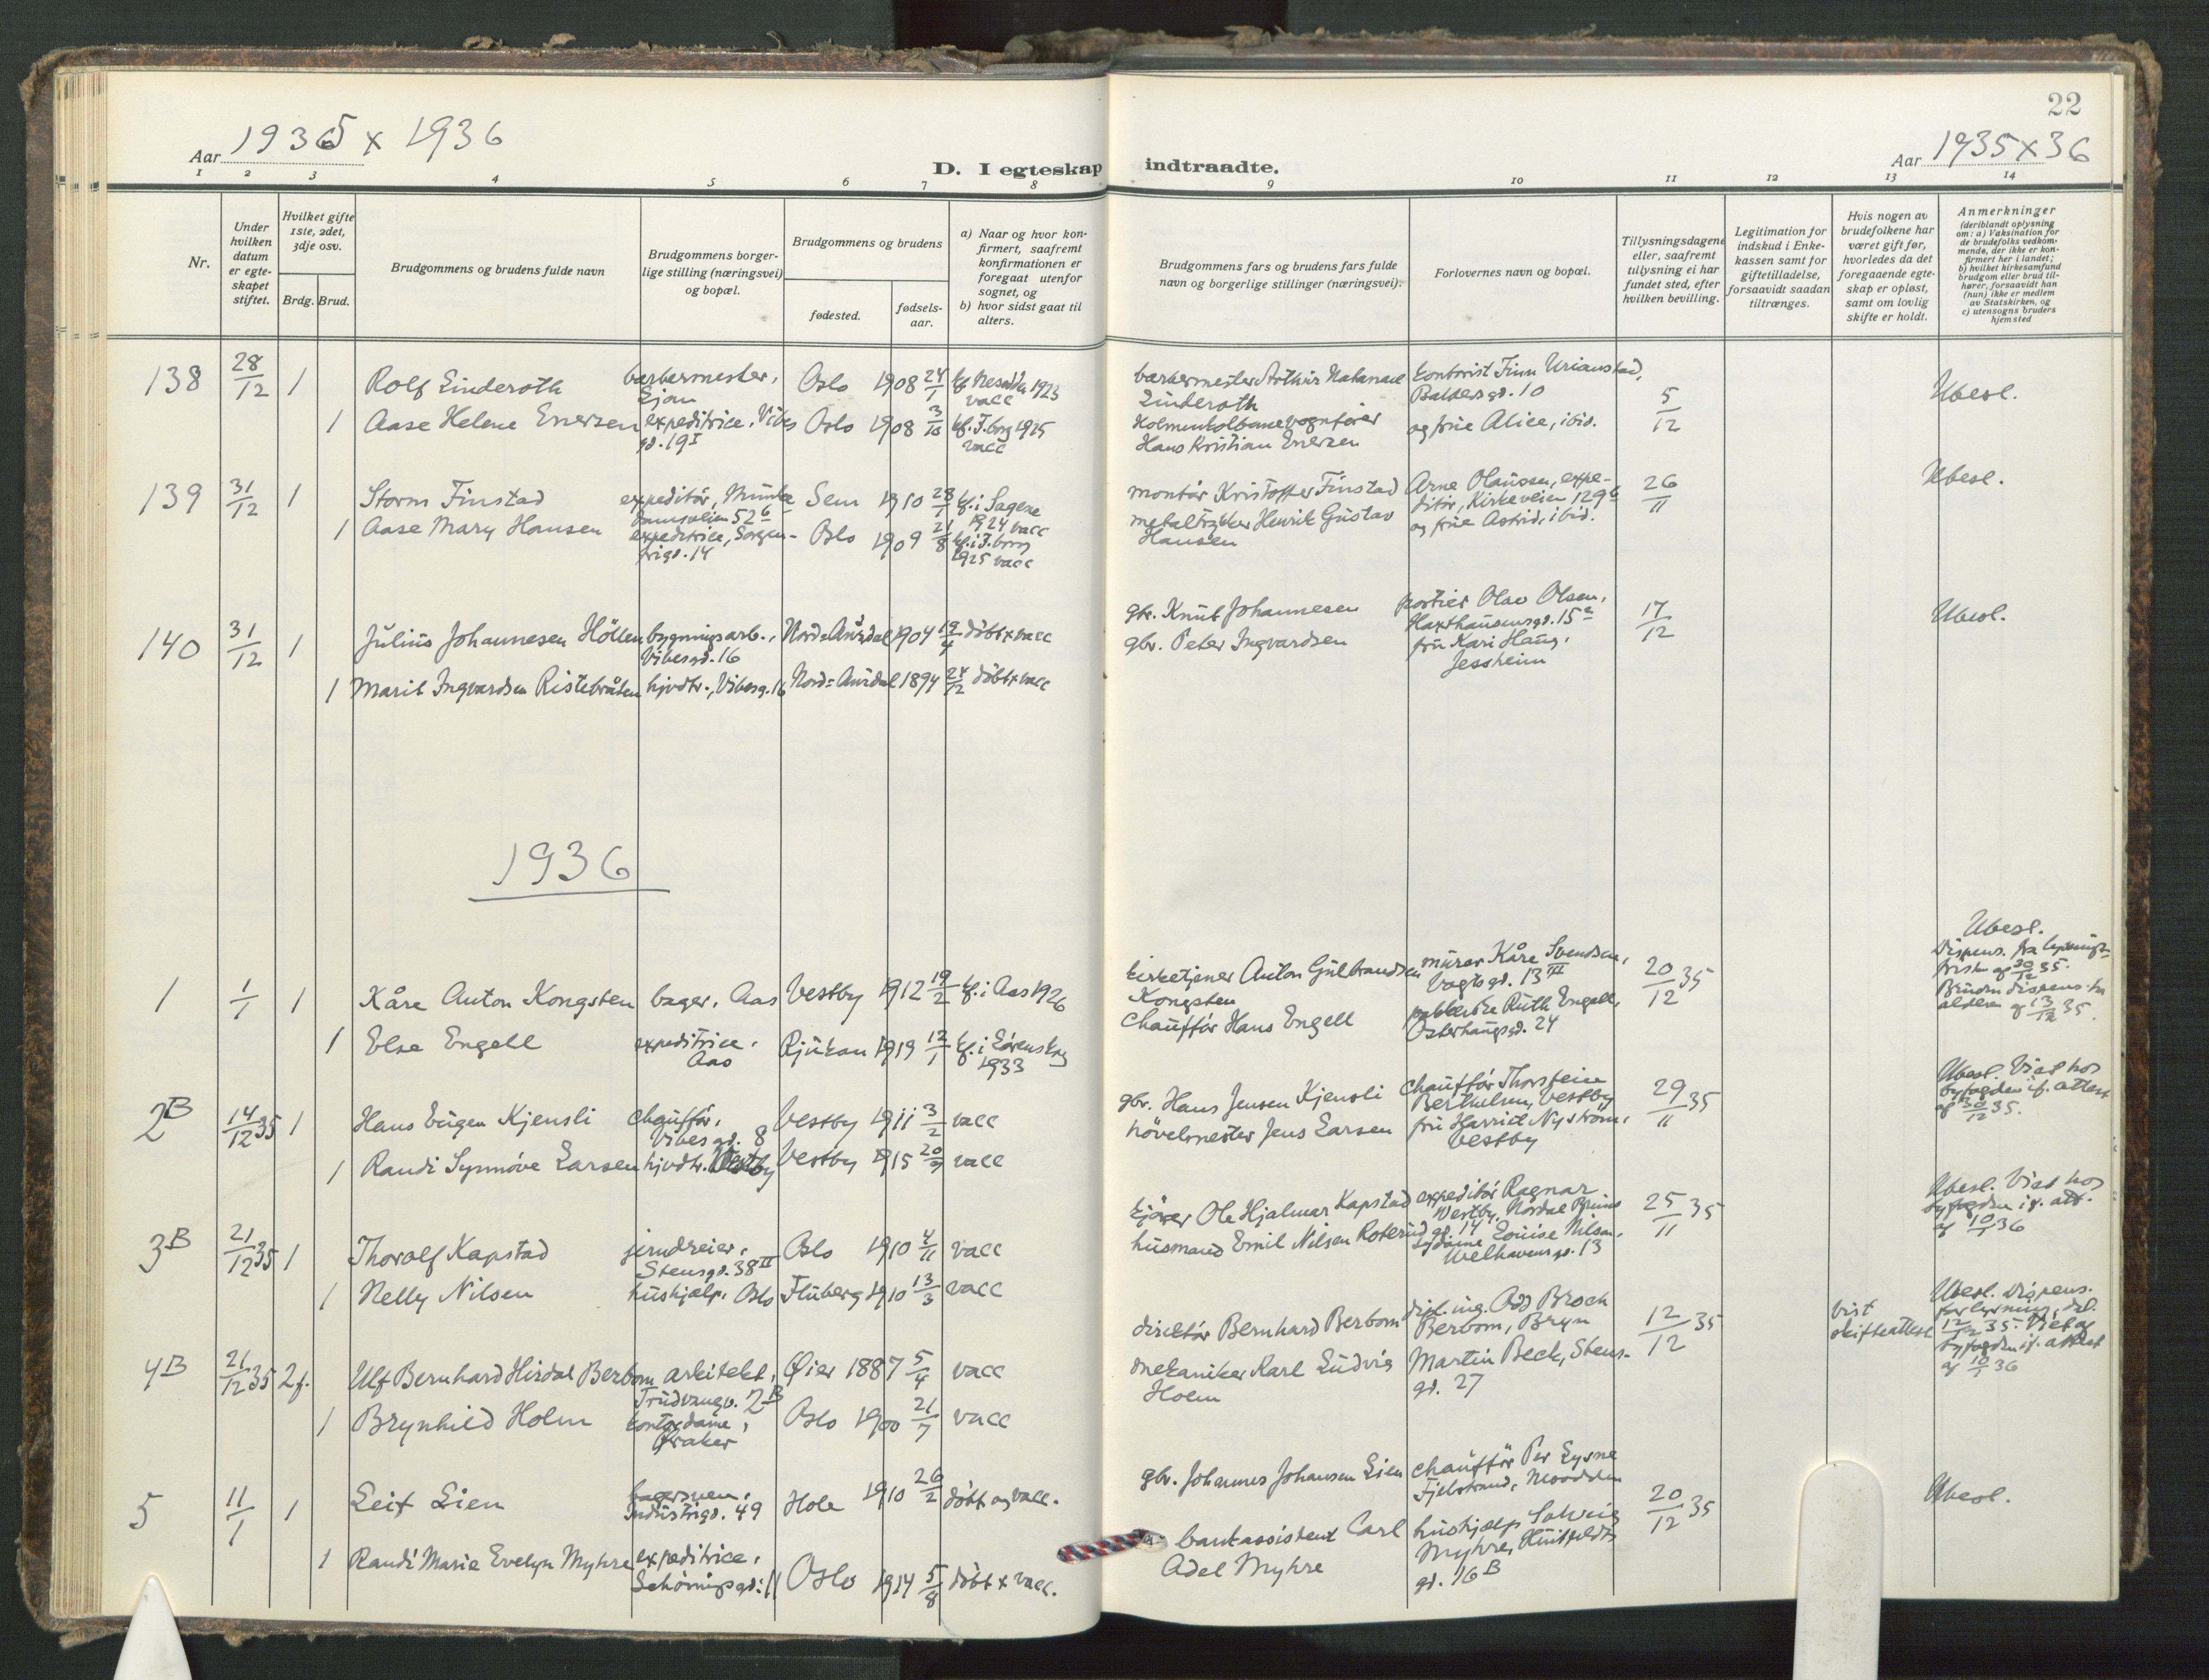 22
Aar 1935 x 1936
D. I egteskap indtraadte.
Aar 1935 x 36
1 2 3 4 5 6 7 8 9 10 11 12 13 14
Nr.
Under hvilken datum er egte-skapet stiftet.
Hvilket gifte 1ste, 2det, 3dje osv.
Brdg. Brud.
Brudgommens og brudens fulde navn
Brudgommens borger-lige stilling (næringsvei) og bopæl.
Brudgommens og brudens
fødested.
fødsels-aar.
a) Naar og hvor kon-firmert, saafremt konfirmationen er foregaat utenfor sognet, og
b) hvor sidst gaat til alters.
Brudgommens fars og brudens fars fulde navn og borgerlige stillinger (næringsvei).
Forlovernes navn og bopæl.
Tillysningsdagene eller, saafremt tillysning ei har fundet sted, efter hvilken bevilling.
Legitimation for indskud i Enke-kassen samt for giftetilladelse, forsaavidt saadan tiltrænges.
Hvis nogen av brudefolkene har været gift før, hvorledes da det foregaaende egte-skap er opløst, samt om lovlig skifte er holdt.
Anmerkninger (deriblandt oplysning om: a) Vaksination for de brudefolks vedkom-mende, der ikke er kon-firmert her i landet; b) hvilket kirkesamfund brudgom eller brud til-hører, forsaavidt han (hun) ikke er medlem av Statskirken, og c) utensogns bruders hjemsted
138 28/12 1 Rolf Linderoth barbermester, Ljan Oslo 1908 24/1 kf. Nesodden 1923 vacc
barbermester Arthur Natanael Linderoth kontorist Finn Urianstad, Baldersgd. 10 5/12 Ubesl.
1 Aase Helene Enersen expeditrice, Vibes gd. 19 I Oslo 1908 3/10 kf. F.borg 1925 vacc
Holmenkolbanevognfører Hans Kristian Enersen og frue Alice, ibid.
139 31/12 1 Storm Finstad expeditør, Munkedamsveien 52 b Sem 1910 28/1 kf. i Sagene 1924 vacc
montør Kristoffer Finstad Arne Olaussen, expe-ditør, Kirkeveien 129 b 26/11 Ubesl.
1 Aase Mary Hansen expeditrice, Sorgen-frigd. 14 Oslo 1909 21/8 kf. i F.borg 1925 vacc
metaltrykker Henrik Gustav Hansen og frue Astrid, ibid.
140 31/12 1 Julius Johannesen Höllen bygningsarb., Vibesgd. 16 Nord-Aurdal 1904 19/4 döbt x vacc
gbr. Knut Johannesen portier Olav Olsen, Haxthausensgd. 15 a 17/12 Ubesl.
1 Marit Ingvardsen Ristebråten hjvdtr., Vibesg. 16 Nord-Aurdal 1894 24/12 döbt x vacc
gbr. Peter Ingvardsen fru Kari Haug, Jessheim
1936
1 1/1 1 Kåre Anton Kongsten bager, Aas Vestby 1912 19/2 kf. i Aas 1926
kirketjener Anton Gulbrandsen Kongsten murer Kåre Svendsen, Vogtsgd. 13 III 20/12 35
Ubesl. Dispens. fra lysnings-frist af 30/12 35. Bruden dispens. fra alderen af 13/12 35.
1 Else Engell expeditrice, Aas Rjukan 1919 12/1 kf. i Lørenskog 1933
chauffør Hans Engell pakkerske Ruth Engell, Osterhausgd. 24
2B 14/12 35 1 Hans Eugen Kjensli chauffør, Vibesgd. 8 Vestby 1911 3/2 vacc
gbr. Hans Jensen Kjensli chauffør Thorstein Berthelsen, Vestby 29/11 35
Ubesl. Viet hos byfogden if. attest af 30/12 35.
1 Randi Synnöve Larsen hjvdtr. Vestby Vestby 1915 20/9 vacc
hövelmester Jens Larsen fru Harriet Nyström, Vestby
3B 21/12 35 1 Thorolf Kapstad jerndreier, Stensgd. 38 II Oslo 1910 4/11 vacc
kjører Ole Hjalmar Kapstad expeditør Ragnar Westby, Nordal Bruns gd. 14 25/11 35
Ubesl. Viet hos byfogden if. att. af 10/1 36
1 Nelly Nilsen hushjælp, Oslo Fluberg 1910 13/3 vacc
husmand Emil Nilsen Roterud sydame Louise Nilsen, Welhavensgd. 13
4B 21/12 35 2 f. Ulf Bernhard Hirdal Berbom arkitekt, Trudvangv. 2 B Øier 1887 5/4 vacc
direktør Bernhard Berbom dipl. ing. Odd Broch Berbom, Bryn 12/12 35 Vist skifteattest
Ubesl. Dispens. for lysning, dat. 12/12 35. Viet af byfogden if. attest af 10/1 36
1 Brynhild Holm kontordame, Øraker Oslo 1900 21/7 vacc
mekaniker Karl Ludvig Holm Martin Beck, Stens-gd. 27
5 11/1 1 Leif Lien bagersven, Industrigd. 49 Hole 1910 26/2 döbt og vacc.
gbr. Johannes Johansen Lien chauffør Per Lysne Fjelstrand, Nesodden 20/12 35 Ubesl.
1 Randi Marie Evelyn Myhre expeditrice, Schöningsgd. 11 Oslo 1914 5/8 döbt x vacc.
bankassistent Carl Adel Myhre hushjælp Solveig Myhre, Huitfeldts gd. 16 B